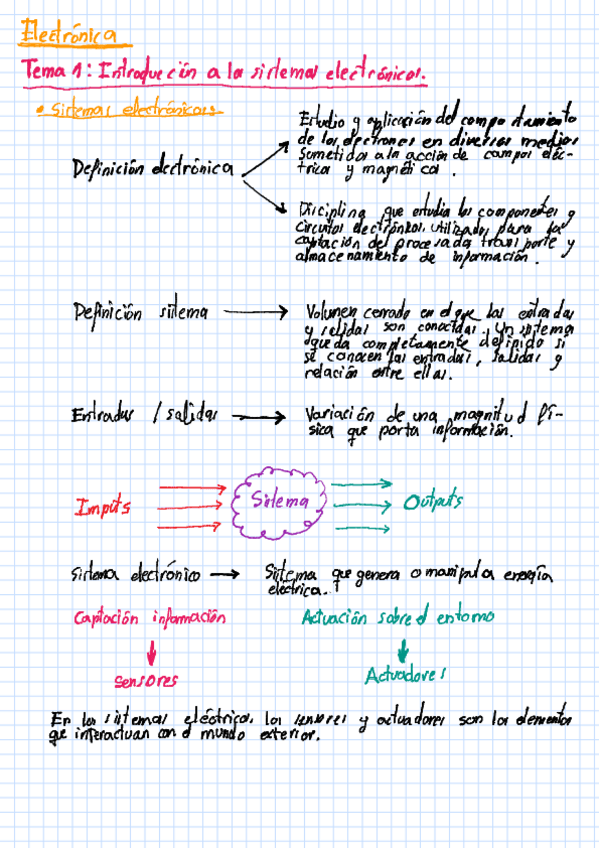 Electrónica
Tema 1: Introducción a los sistemas electrónicos.
• Sistemas electrónicos.
Definición electrónica
Estudio y aplicación del comportamiento
de los electrones en diversos medios
sometidos a la acción de campos eléc-
trica y magnética.
Disciplina que estudia los componentes y
circuitos electrónicos, utilizados para la
captación del procesado transporte y
almacenamiento de información.
Definición sistema
Volumen cerrado en el que las entradas
y salidas son conocidas. Un sistema
queda completamente definido si
se conocen las entradas, salidas y
relación entre ellas.
Entradas / salidas
Variación de una magnitud fí-
sica que porta información.
Inputs
Sistema
Outputs
Sistema electrónico
Sistema que genera o manipula energía
eléctrica.
Captación información
Actuación sobre el entorno
Sensores
Actuadores
En los sistemas eléctricos, los sensores y actuadores son los elementos
que interactuan con el mundo exterior.